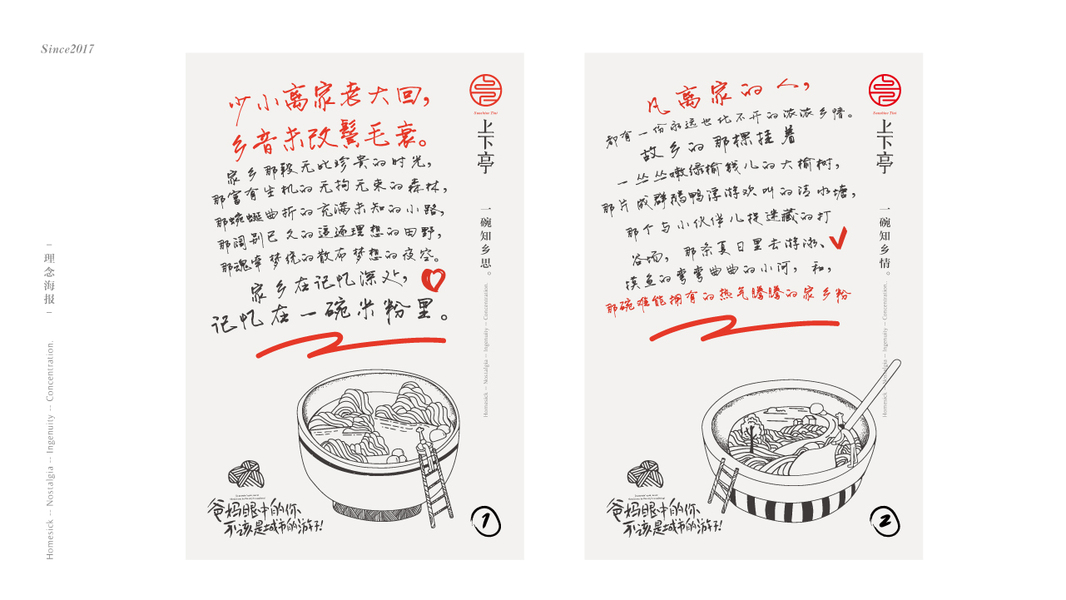 Since2017
理念海报
Homesick -- Nostalgia -- Ingenuity -- Concentration.
少小离家老大回，
乡音未改鬓毛衰。
家乡那段无比珍贵的时光，
那富有生机的无拘无束的森林，
那蜿蜒曲折的充满未知的小路，
那阔别已久的遥遥理想的田野，
那魂牵梦绕的散布梦想的夜空。
家乡在记忆深处，
记忆在一碗米粉里。
上下亭
一碗知乡思。
Homesick -- Nostalgia -- Ingenuity -- Concentration.
爸妈眼中的你
不该是城市的游子!
1
凡离家的人，
都有一份永远也化不开的浓浓乡情。
故乡的那棵挂着
一丛丛嫩绿榆钱儿的大榆树，
那片成群鹅鸭浮游欢叫的清水塘，
那个与小伙伴儿捉迷藏的打
谷场，那条夏日里去游泳、
摸鱼的弯弯曲曲的小河，和，
那碗难能拥有的热气腾腾的家乡粉
上下亭
一碗知乡情。
Homesick -- Nostalgia -- Ingenuity -- Concentration.
爸妈眼中的你
不该是城市的游子!
2